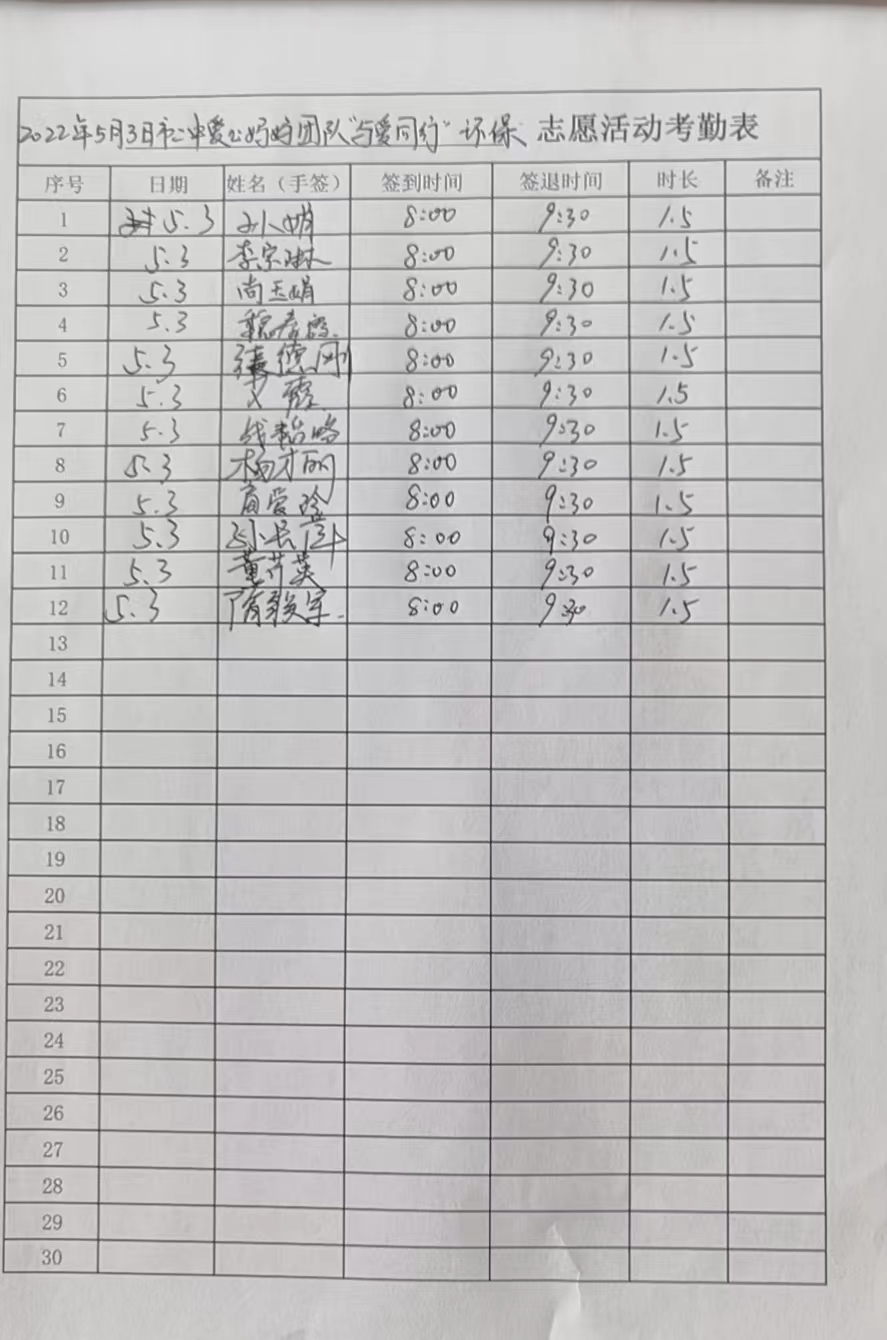 2022年5月3日市二中爱心妈妈团队"与爱同行"环保 志愿活动考勤表
序号 日期 姓名（手签） 签到时间 签退时间 时长 备注
1 5.3 孙娟 8:00 9:30 1.5
2 5.3 李宗琳 8:00 9:30 1.5
3 5.3 尚玉娟 8:00 9:30 1.5
4 5.3 8:00 9:30 1.5
5 5.3 张德刚 8:00 9:30 1.5
6 5.3 霞 8:00 9:30 1.5
7 5.3 8:00 9:30 1.5
8 5.3 杨才丽 8:00 9:30 1.5
9 5.3 爱玲 8:00 9:30 1.5
10 5.3 8:00 9:30 1.5
11 5.3 董芹英 8:00 9:30 1.5
12 5.3 8:00 9:30 1.5
13
14
15
16
17
18
19
20
21
22
23
24
25
26
27
28
29
30